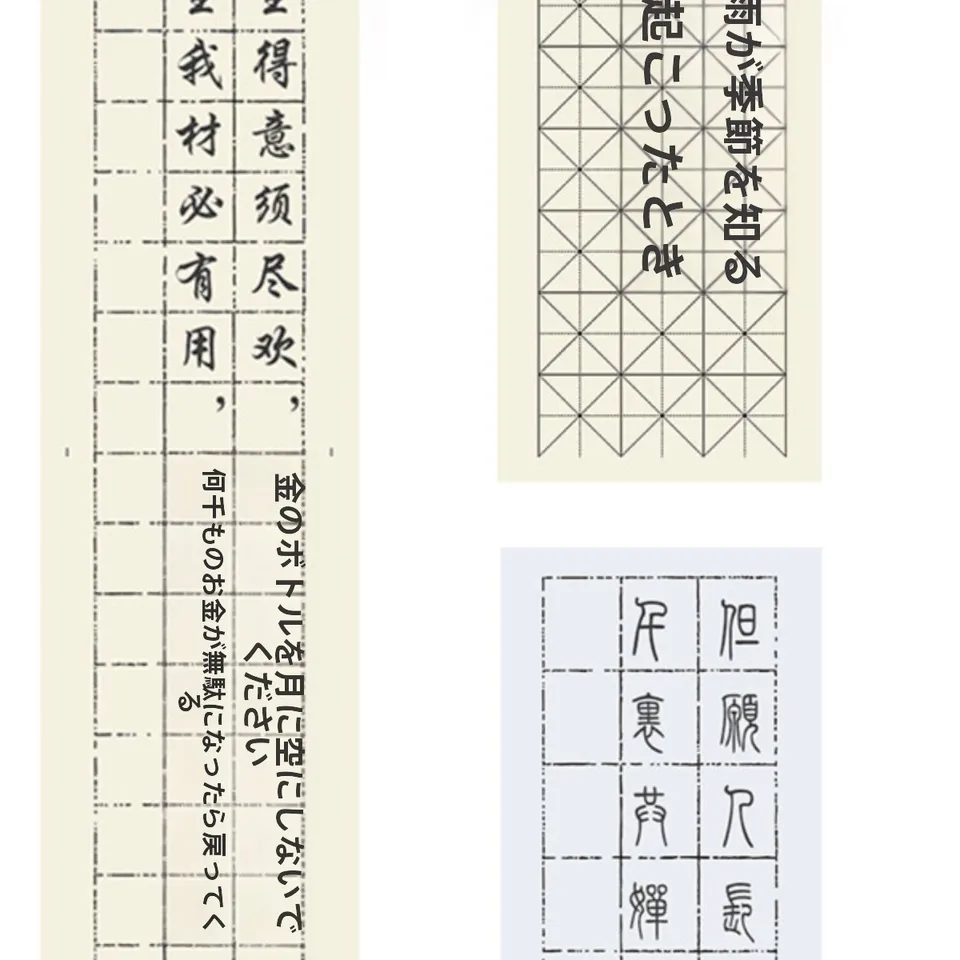 得意须尽欢，
金のボトルを月に空にしないで
ください
我材必有用，
何千ものお金が無駄になったら戻ってく
る
雨が季節を知る
起こったとき
但願人長
千裏共嬋